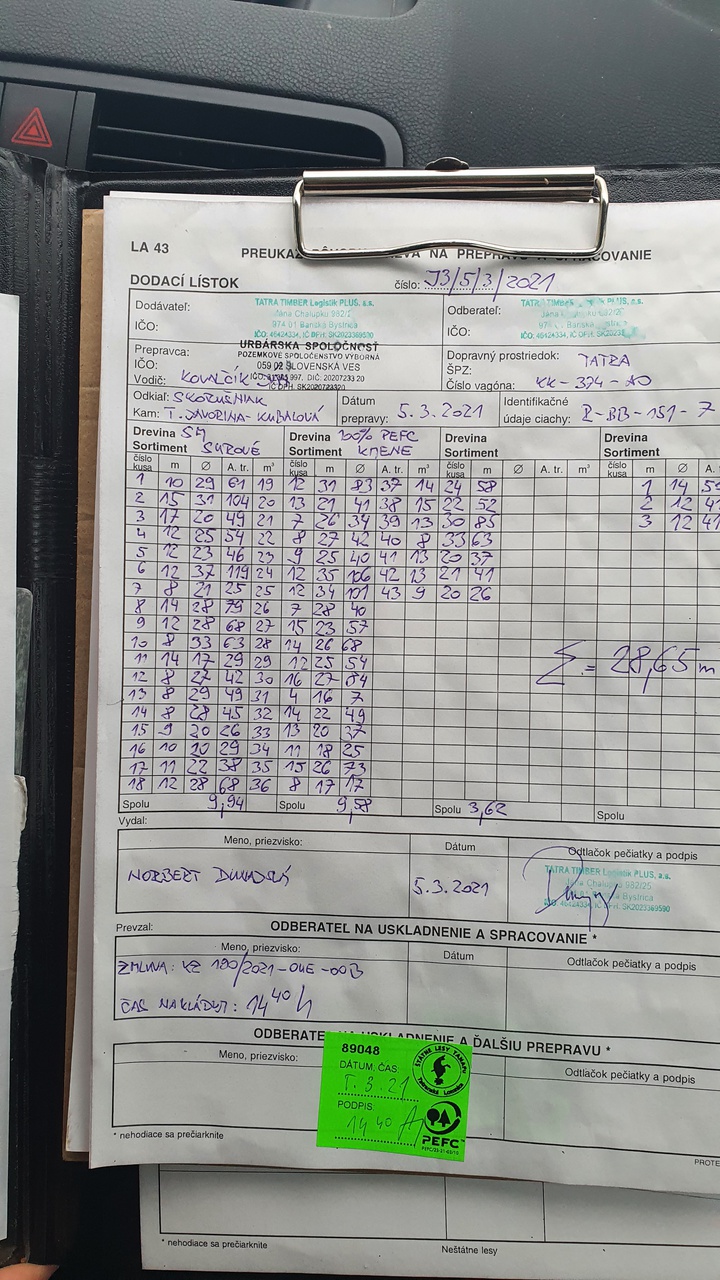 LA 43
PREUKAZ NA PREPRAVU A SPRACOVANIE
DODACÍ LÍSTOK
číslo: J3/5/3/2021
Dodávateľ:
TATRA TIMBER Logistik PLUS, s.s.
Jána Chalupku 982/2
974 01 Banská Bystrica
IČO: 46424334, IČ DPH: SK2023369590
IČO:
Odberateľ:
TATRA PLUS, s.s.
Banská Bystrica
IČO:
Prepravca:
URBÁRSKA SPOLOČNOSŤ
POZEMKOVÉ SPOLOČENSTVO VÝBORNÁ
059 02 SLOVENSKÁ VES
IČO: 997, DIČ: 2020723320
IČ DPH: SK2020723320
IČO:
Vodič: KOVALČÍK
Dopravný prostriedok: TATRA
ŠPZ:
Číslo vagóna: KK-374-AO
Odkiaľ: SKORUŠNIAK
Kam: T. JAVORINA-KUBALOVÁ
Dátum prepravy: 5.3.2021
Identifikačné údaje ciachy: R-BB-151-7
Drevina SM Drevina 100% PEFC Drevina Drevina
Sortiment SUROVÉ Sortiment KMENE Sortiment Sortiment
číslo kusa m Ø A. tr. m³ číslo kusa m Ø A. tr. m³ číslo kusa m Ø A. tr. m³ číslo kusa m Ø A.
1 10 29 61 19 12 31 83 37 14 24 58 1 14
2 15 31 104 20 13 21 41 38 15 22 52 2 12
3 17 20 49 21 7 26 34 39 13 30 85 3 12
4 12 25 54 22 8 27 42 40 8 33 63
5 12 23 46 23 9 25 40 41 13 20 37
6 12 37 119 24 12 35 106 42 13 21 41
7 8 21 25 25 12 34 101 43 9 20 26
8 14 28 79 26 7 28 40
9 12 28 68 27 15 23 57
10 8 33 63 28 14 26 68
11 14 17 29 29 12 25 54
12 8 27 42 30 16 27 84
13 8 29 49 31 4 16 7
14 8 28 45 32 14 22 49
15 9 20 26 33 13 20 37
16 10 10 29 34 11 18 25
17 11 22 38 35 15 26 73
18 12 28 68 36 8 17 17
Σ = 28,65 m
Spolu 9,94 Spolu 9,58 Spolu 3,62 Spolu
Vydal:
Meno, priezvisko: Dátum Odtlačok pečiatky a podpis
NORBERT 5.3.2021
TATRA TIMBER Logistik PLUS, s.s.
Jána Chalupku 982/25
Banská Bystrica
IČO: 46424334, IČ DPH: SK2023369590
Prevzal:
ODBERATEĽ NA USKLADNENIE A SPRACOVANIE *
Meno, priezvisko: Dátum Odtlačok pečiatky a podpis
ZMLUVA: KZ 190/2021-OLE-OOB
ČAS NAKLÁDKY: 14 40 h
ODBERATEĽ NA USKLADNENIE A ĎALŠIU PREPRAVU *
Meno, priezvisko: Odtlačok pečiatky a podpis
89048
DÁTUM: ČAS:
5.3.21
PODPIS:
14 40
ŠTÁTNE LESY TANAPU
Tatranská Lomnica
PEFC
* nehodiace sa prečiarknite
* nehodiace sa prečiarknite
Neštátne lesy